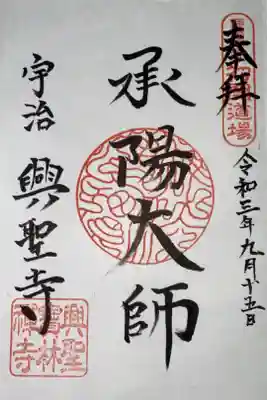 奉拝
令和三年九月十五日
承陽大師
宇治 興聖寺
興聖
禅寺